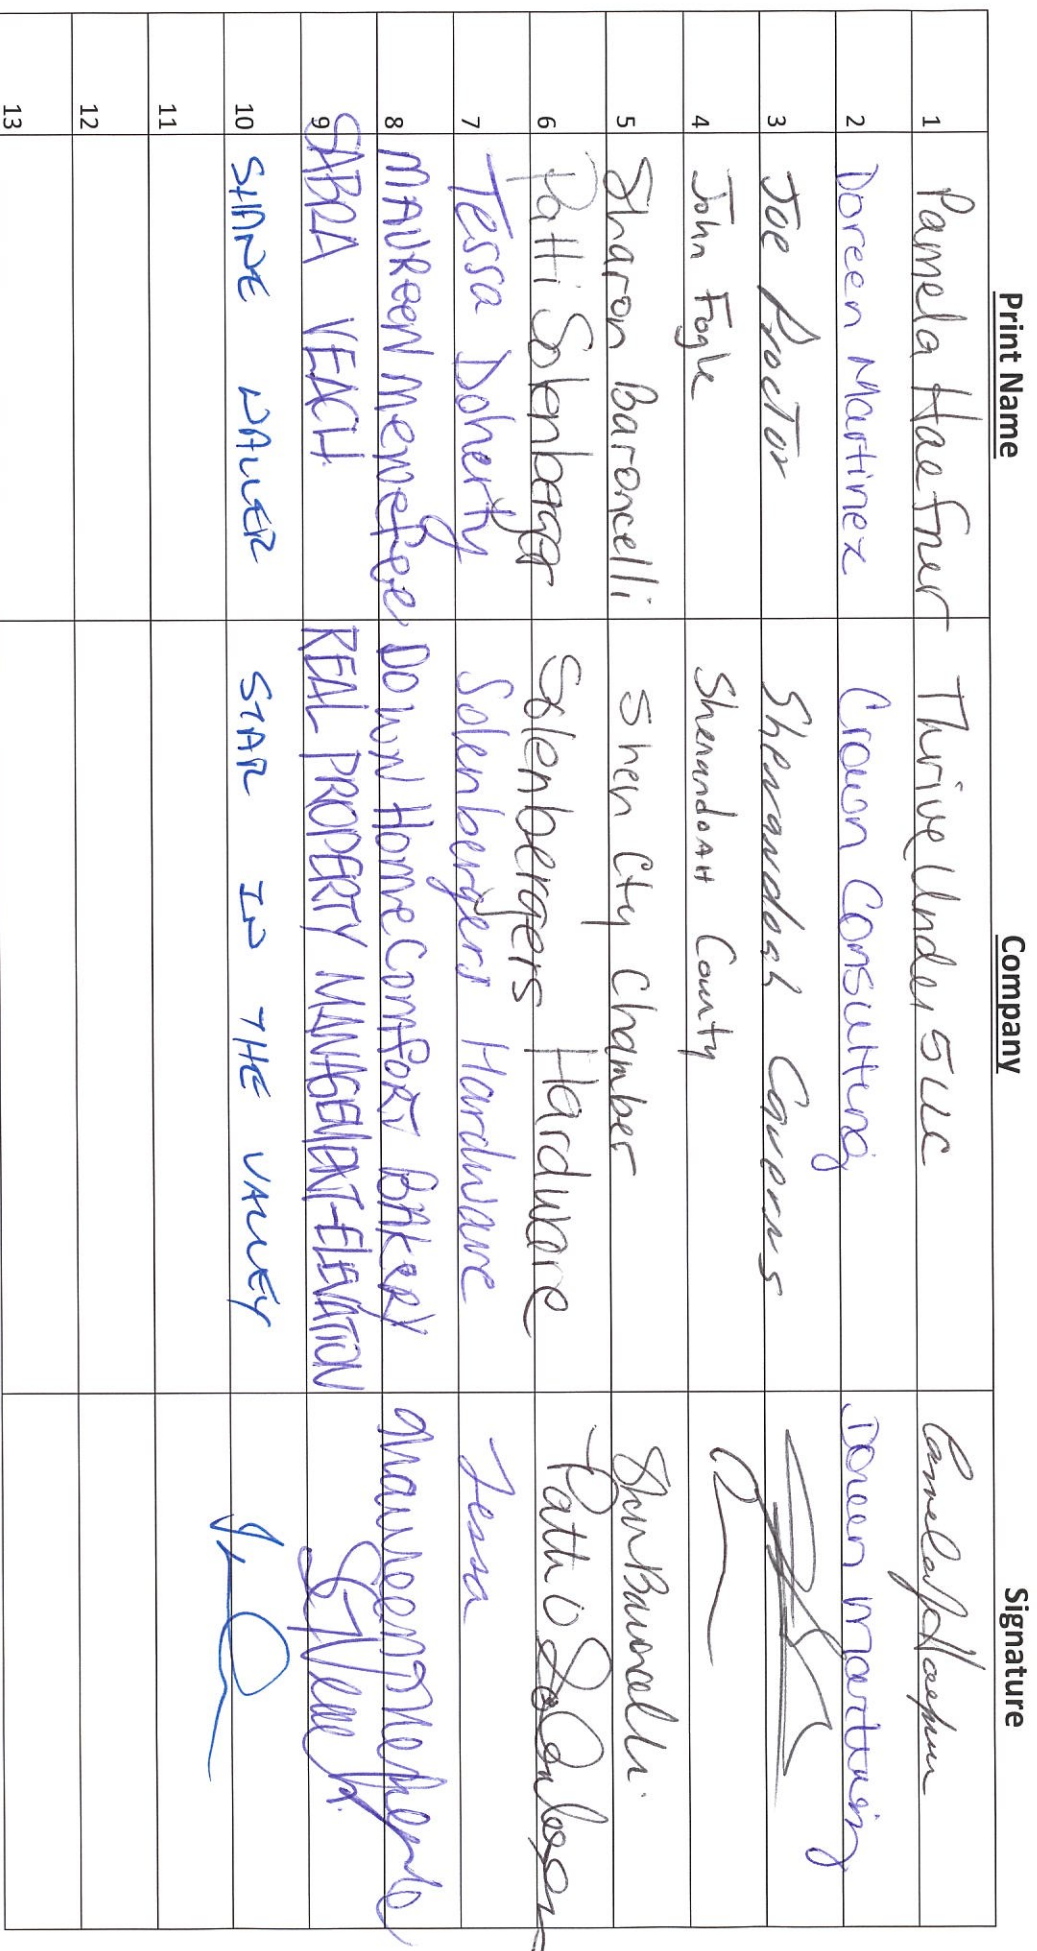 Print Name Company Signature
1 Pamela Haefner Thrive Under 5 LLC
2 Doreen Martinez Crown Consulting Doreen Martinez
3 Joe Proctor Shenandoah Caverns
4 John Fogle Shenandoah County
5 Sharon Baroncelli Shen Cty Chamber
6 Patti Solenberger Solenbergers Hardware
7 Tessa Doherty Solenbergers Hardware Tessa
8 Maureen Menefee Down Home Comfort Bakery
9 SABRA VEACH REAL PROPERTY MANAGEMENT-ELEVATION
10 SHANE WALLER STAR IN THE VALLEY
11
12
13